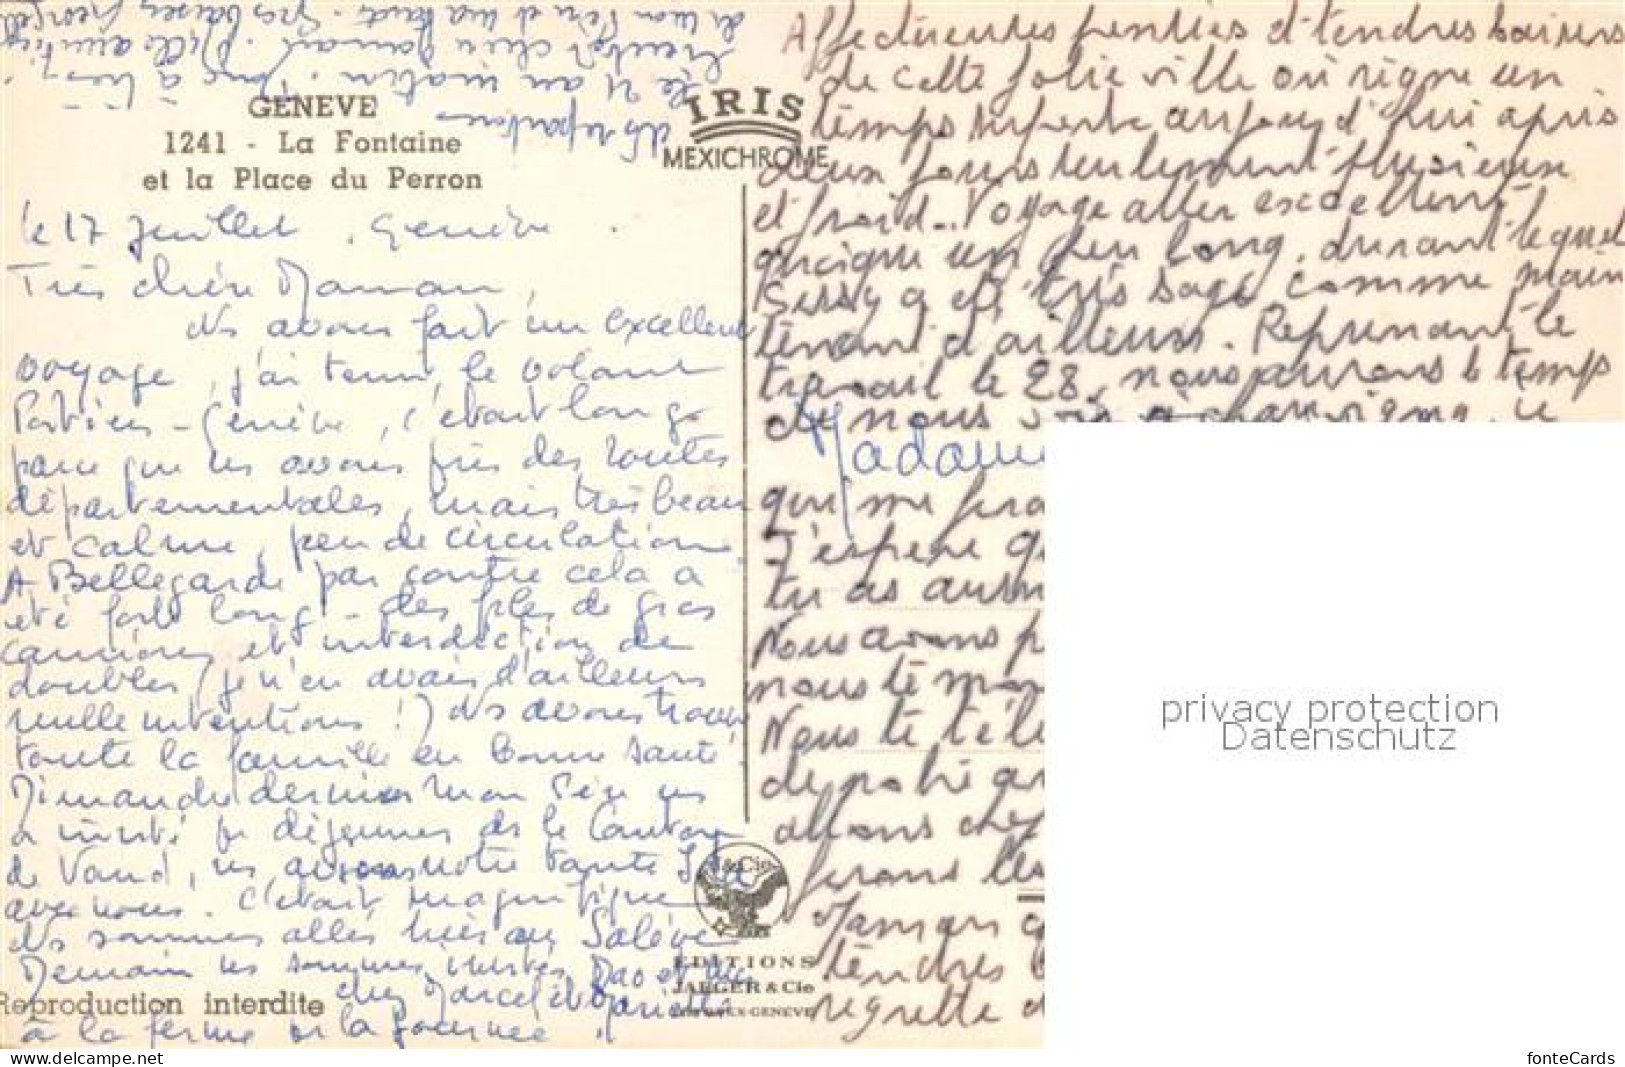 GENEVE
1241 - La Fontaine
et la Place du Perron
IRIS
MEXICHROME
le 17 Juillet, Genève
Très chère Maman,
Ns avons fait un excellent
voyage, j'ai tenu le volant
Poitiers - Genève, c'était long
parce que ns avons pris des routes
départementales, mais très beau
et calme, peu de circulation
A Bellegarde par contre cela a
été fort long - des files de gros
camions et interdiction de
doubler (je n'en avais d'ailleurs
nulle intention !) Ns avons trouvé
toute la famille en bonne santé.
Dimanche dernier mon Père ns
a invité à déjeuner ds le Canton
de Vaud, ns avions notre tante
avec nous. C'était magnifique
Ns sommes allés hier au Salève
Demain ns sommes invités
chez Marcel et Mariette
à la ferme pr la journée
ns repartons
le 21 au matin. Donc à très
bientôt chère Maman.
de mon Père et ma tante. Gros baisers
Affectueuses pensées et tendres baisers
de cette jolie ville où règne un
temps superbe aujourd'hui après
deux jours seulement pluvieux
et froid... Voyage aller excellent
quoique un peu long, durant lequel
Sissy a été très sage comme main
tenant d'ailleurs. Reprenant le
travail le 28, nous aurons le temps
de nous voir à
Madame
qui me fera
J'espère q
tu as aussi
Nous avons p
nous te
Nous te tél
de
allons chez
ferons les
Maman q
tendres b
regrette d
J&Cie
EDITIONS
JAEGER & Cie
GENEVE
Reproduction interdite
privacy protection
Datenschutz
www.delcampe.net
fonteCards